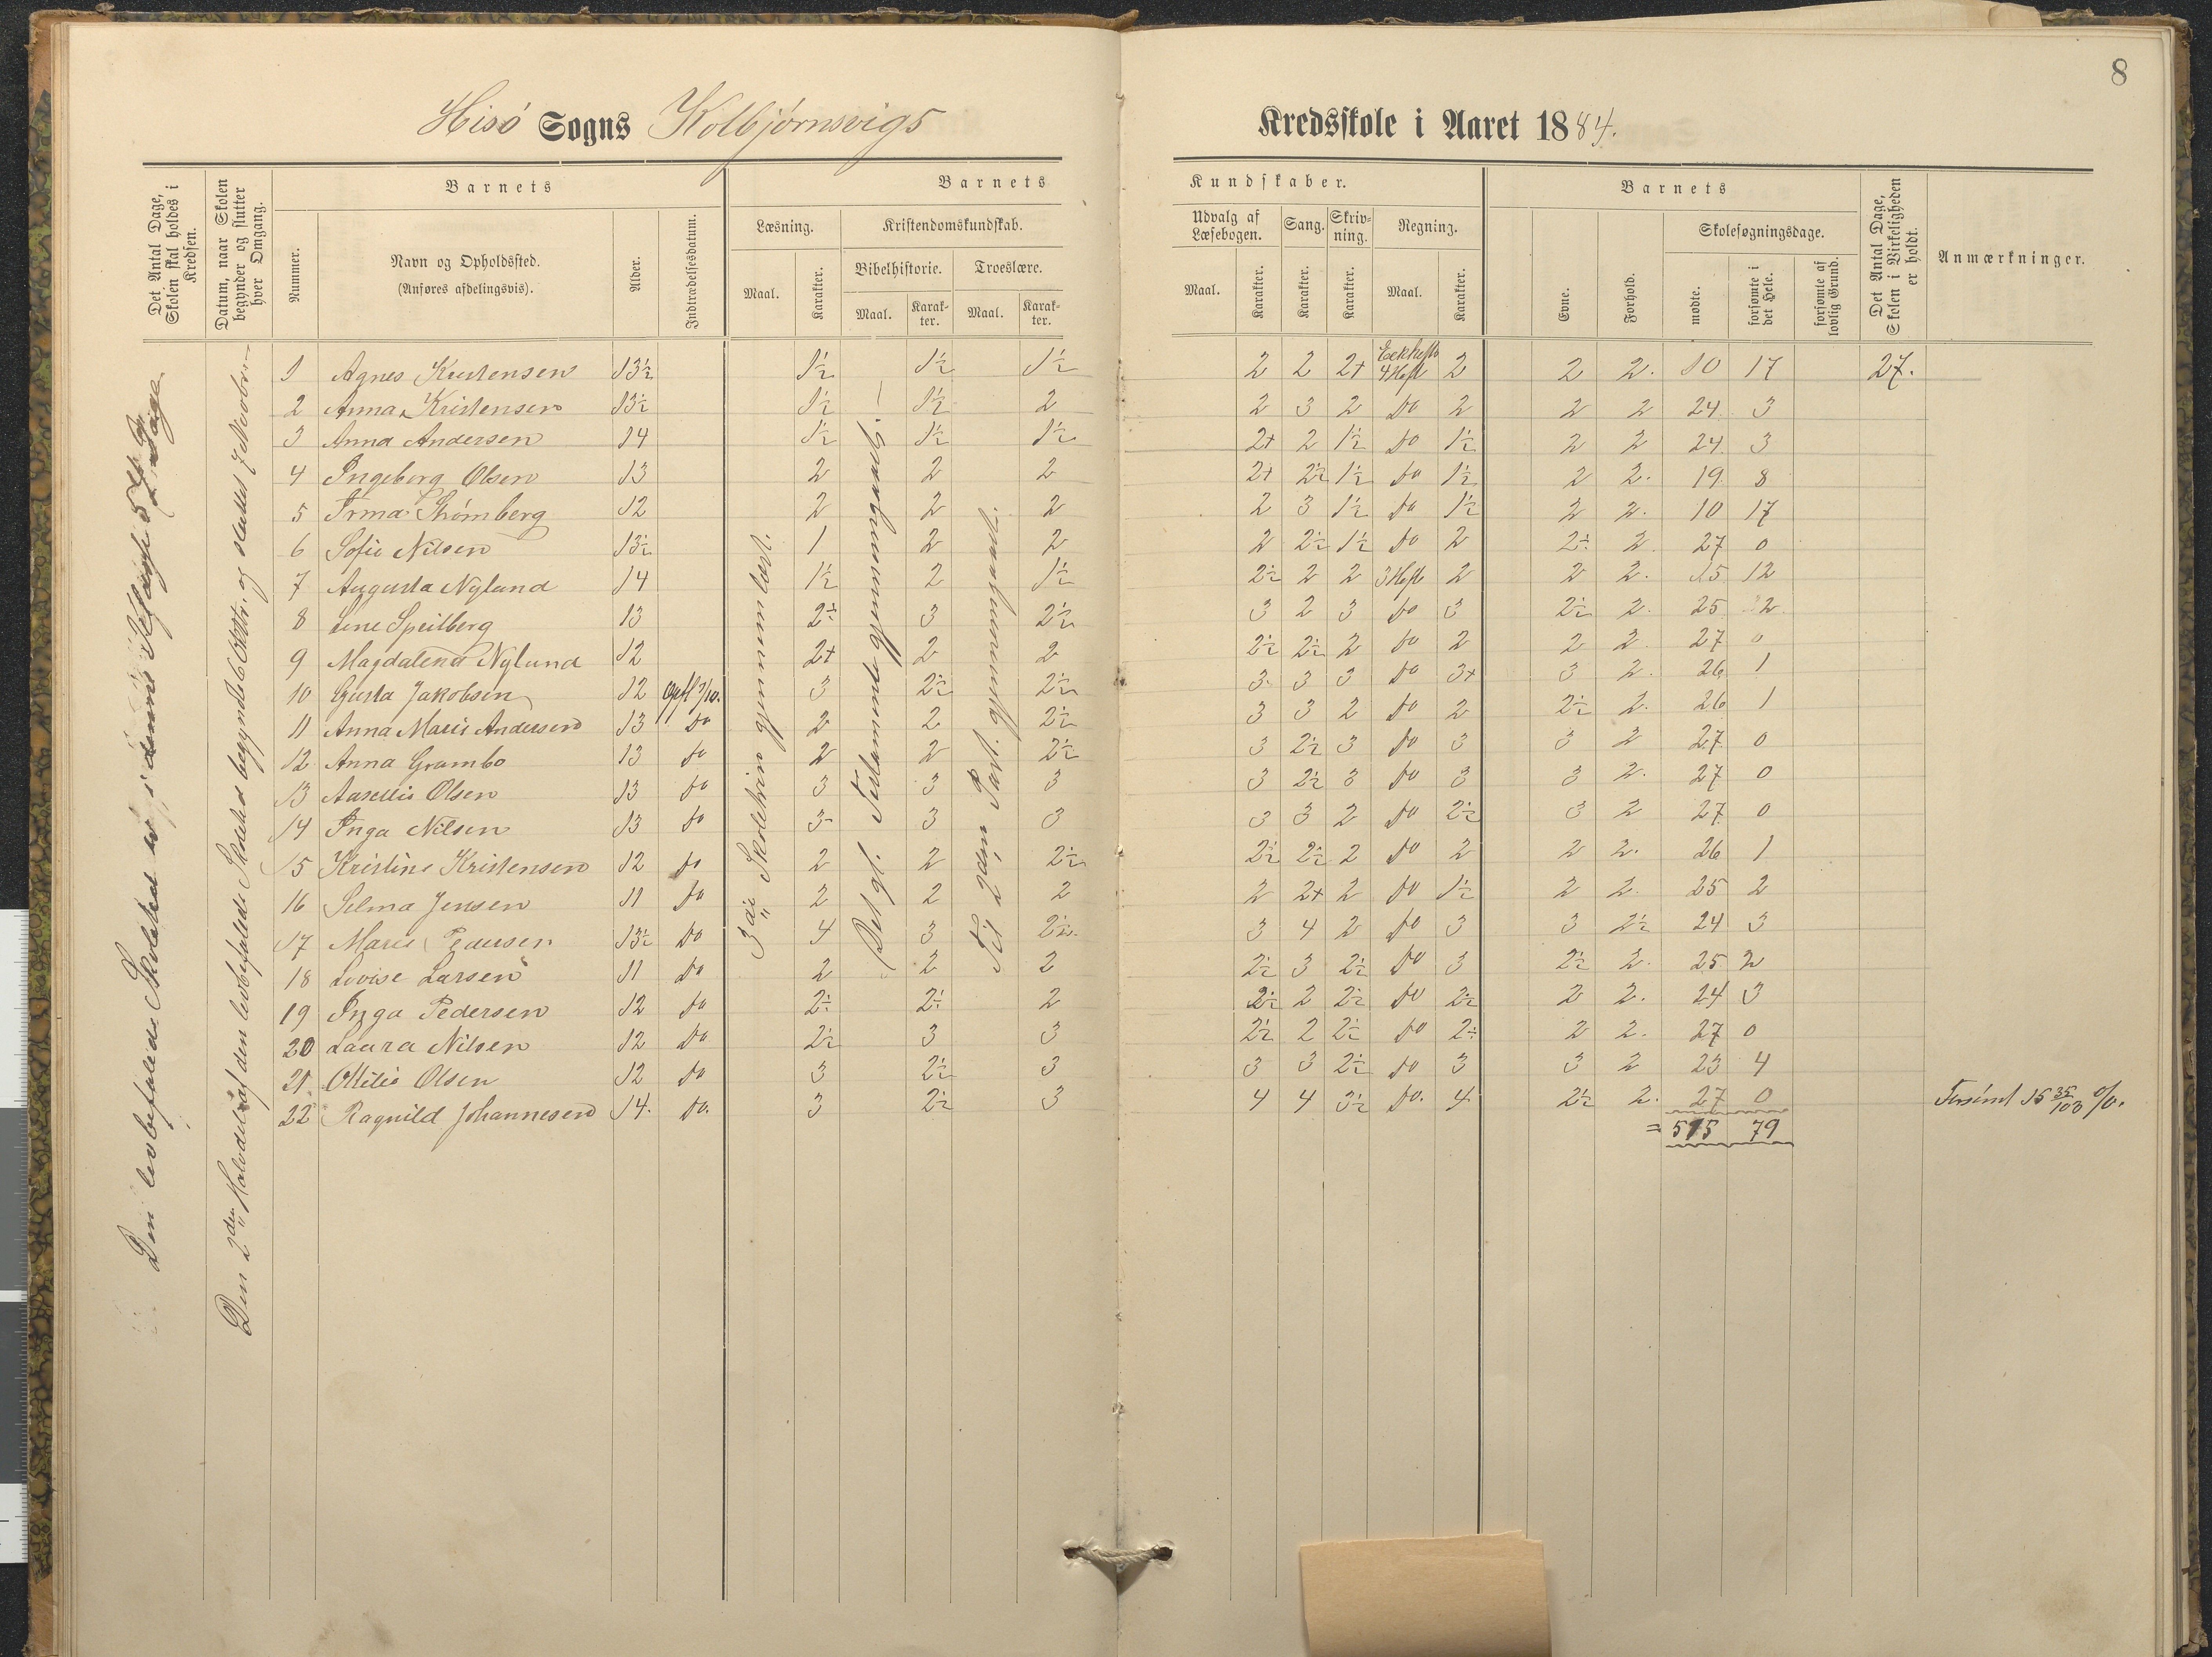 8
Hisö Sogns Kolbjørnsvigs Kredsskole i Aaret 1884.
Det Antal Dage, Skolen skal holdes i Kredsen.
Datum, naar Skolen begynder og slutter hver Omgang.
Barnets
Nummer.
Navn og Opholdssted.
(Anføres afdelingsvis).
Alder.
Indtrædelsesdatum.
Barnets Kundskaber.
Læsning.
Maal.
Karakter.
Kristendomskundskab.
Bibelhistorie.
Maal.
Karakter.
Troeslære.
Maal.
Karakter.
Udvalg af Læsebogen.
Maal.
Karakter.
Sang.
Karakter.
Skrivning.
Karakter.
Regning.
Maal.
Karakter.
Barnets
Evne.
Forhold.
Skolesøgningsdage.
mødte.
forsømte i det Hele.
forsømte af lovlig Grund.
Det Antal Dage, Skolen i Virkeligheden er holdt.
Anmærkninger.
Den 2den Halvdel af den lovbefalede Skoletid begyndte 6 Oktbr. og sluttet 7 Novbr.
3die Skoletrin gjennemlæst.
Det gl. Testamente gjennemgaaet.
Til 2den Part. gjennemgaaet.
1 Agnes Kristensen 13½ 1½ 1½ 1½ 2 2 2+ 4 Heft 2 2 2. 10 17 27.
2 Anna Kristensen 13½ 1½ 1½ 2 2 3 2 do 2 2 2 24 3
3 Anna Andersen 14 1½ 1½ 1½ 2+ 2 1½ do 1½ 2 2 24 3
4 Ingeborg Olsen 13 2 2 2 2+ 2½ 1½ do 1½ 2 2. 19 8
5 Irma Strømberg 12 2 2 2 2 3 1½ do 1½ 2 2. 10 17
6 Sofie Nilsen 13½ 1 2 2 2 2½ 1½ do 2 2½ 2 27 0
7 Augusta Nylund 14 1½ 2 1½ 2½ 2 2 3 Heft 2 2 2. 15 12
8 Lene Speilberg 13 2½ 3 2½ 3 2 3 do 3 2½ 2. 25 2
9 Magdalena Nylund 12 2+ 2 2 2½ 2½ 2 do 2 2 2 27 0
10 Gusta Jakobsen 12 opfl 7/10. 3 2½ 2½ 3 3 3 do 3+ 3 2. 26 1
11 Anna Marie Andersen 13 do 2 2 2½ 3 3 2 do 2 2½ 2. 26 1
12 Anna Grambo 13 do 2 2 2½ 3 2½ 3 do 3 3 2 27 0
13 Aasellie Olsen 13 do 3 3 3 3 2½ 3 do 3 3 2. 27 0
14 Inga Nilsen 13 do 3 3 3 3 3 2 do 2½ 3 2 27 0
15 Kristine Kristensen 12 do 2 2 2½ 2½ 2½ 2 do 2 2 2. 26 1
16 Selma Jensen 11 do 2 2 2 2 2+ 2 do 1½ 2 2 25 2
17 Marie Pedersen 13½ do 4 3 2½ 3 4 2 do 3 3 2½ 24 3
18 Lovise Larsen 11 do 2 2 2 2½ 3 2½ do 3 2½ 2. 25 2
19 Inga Pedersen 12 do 2½ 2½ 2 2½ 2 2½ do 2½ 2 2. 24 3
20 Laura Nilsen 12 do 2½ 3 3 2½ 2 2½ do 2½ 2 2. 27 0
21 Ottilie Olsen 12 do 3 2½ 3 3 3 2½ do 3 3 2 23 4
22 Ragnild Johannesen 14. do. 3 2½ 3 4 4 3½ do. 4 2½ 2. 27 0 Forsømt 15 35/103 %.
= 515 79